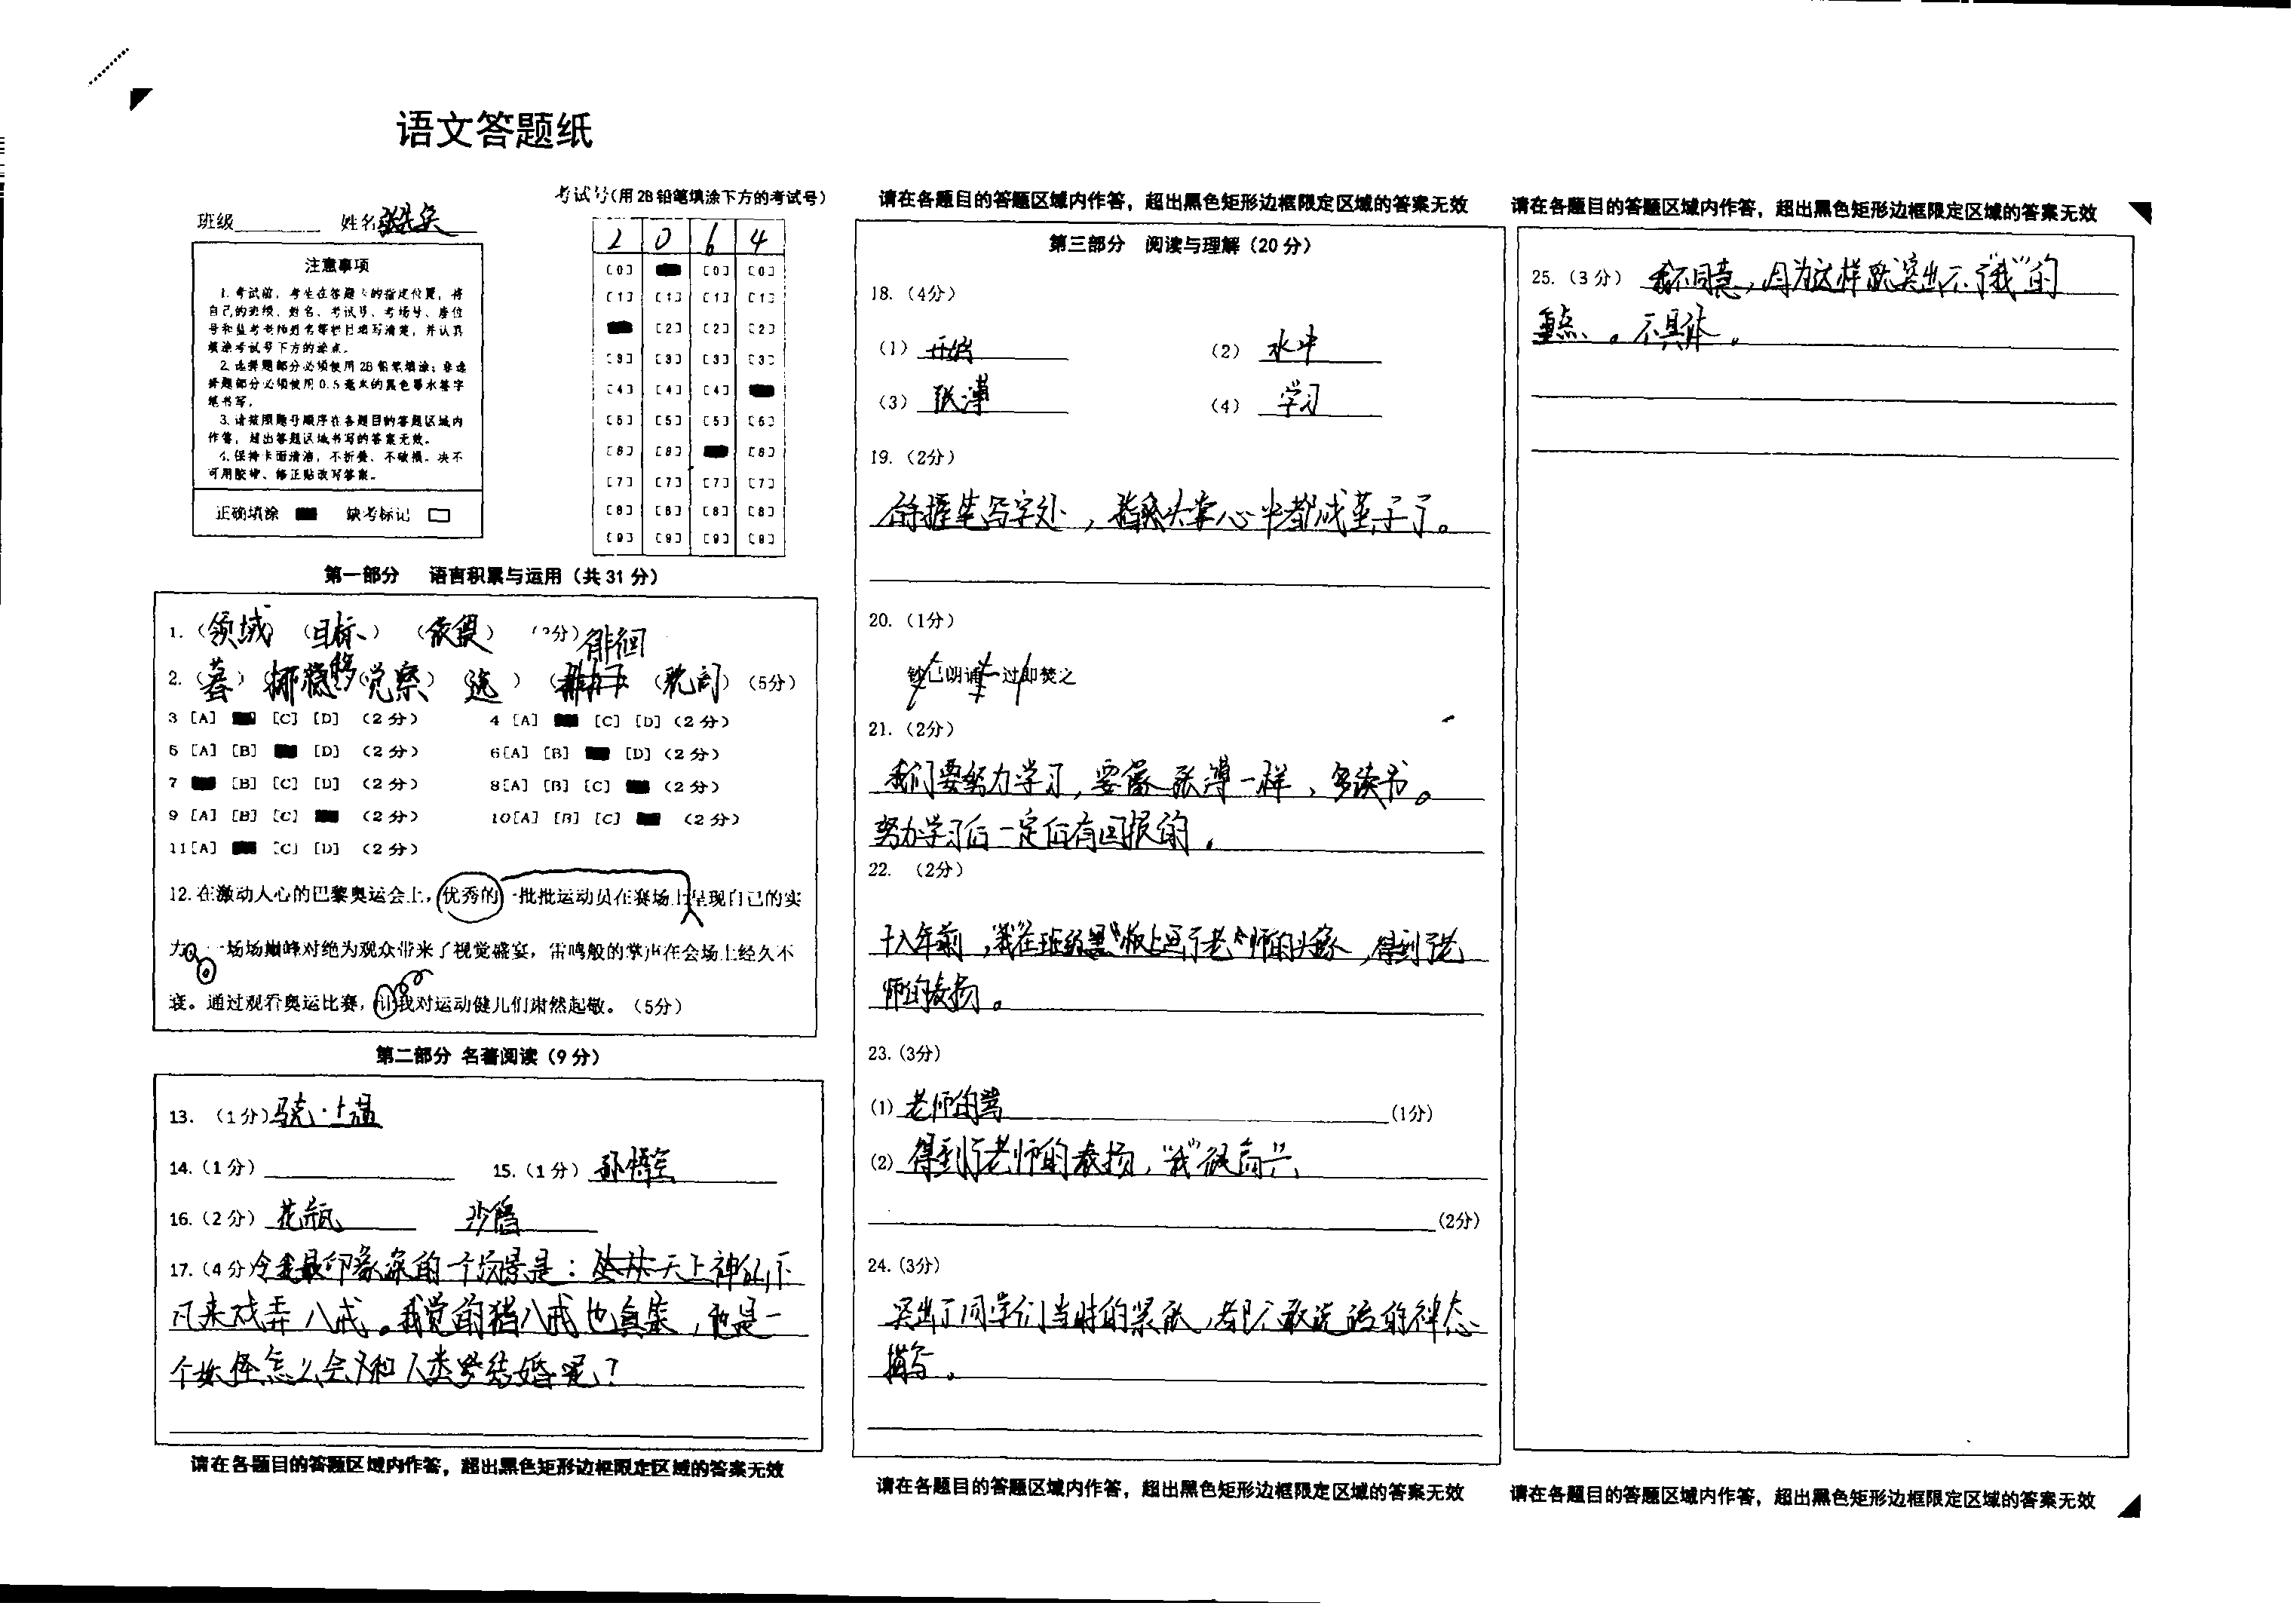 语文答题纸
班级 姓名
考试号(用2B铅笔填涂下方的考试号)
2 0 6 4
注意事项
1. 考试前，考生在答题卡的指定位置，将
自己的班级、姓名、考试号、考场号、座位
号和监考老师姓名等栏目填写清楚，并认真
填涂考试号下方的涂点。
2. 选择题部分必须使用2B铅笔填涂；非选
择题部分必须使用0.5毫米的黑色墨水签字
笔书写。
3. 请按照题号顺序在各题目的答题区域内
作答，超出答题区域书写的答案无效。
4. 保持卡面清洁，不折叠、不破损。决不
可用胶带、修正贴改写答案。
正确填涂 缺考标记
[0] [0] [0]
[1] [1] [1] [1]
[2] [2] [2]
[3] [3] [3] [3]
[4] [4] [4]
[5] [5] [5] [5]
[6] [6] [6]
[7] [7] [7] [7]
[8] [8] [8] [8]
[9] [9] [9] [9]
第一部分 语言积累与运用（共31分）
1.（领域）（目标）（依偎）（2分）徘徊
2.（暮）挪移（觉察）（选）（晓阅）（5分）
3 [A] [C] [D] （2分） 4 [A] [C] [D]（2分）
5 [A] [B] [D] （2分） 6[A] [B] [D]（2分）
7 [B] [C] [D] （2分） 8[A] [B] [C] （2分）
9 [A] [B] [C] （2分） 10[A] [B] [C] （2分）
11[A] [C] [D] （2分）
12.在激动人心的巴黎奥运会上，优秀的一批批运动员在赛场上呈现自己的实
力。一场场巅峰对绝为观众带来了视觉盛宴，雷鸣般的掌声在会场上经久不
衰。通过观看奥运比赛，让我对运动健儿们肃然起敬。（5分）
第二部分 名著阅读（9分）
13.（1分）马克·土温
14.（1分） 15.（1分）孙悟空
16.（2分）花瓶 沙僧
17.（4分）令我最印象深的一个场景是：丛林天上神仙下
凡来戏弄八戒。我觉的猪八戒也真笨，他是一
个妖怪怎么会和人类结婚呢？
请在各题目的答题区域内作答，超出黑色矩形边框限定区域的答案无效
请在各题目的答题区域内作答，超出黑色矩形边框限定区域的答案无效
第三部分 阅读与理解（20分）
18.（4分）
（1）开始 （2）水中
（3）张溥 （4）学习
19.（2分）
右手握笔写字处，指头掌心中都成茧子了。
20.（1分）
钞已朗诵一过即焚之
21.（2分）
我们要努力学习，要像张溥一样，多读书。
努力学习后一定后有回报的。
22. （2分）
十八年前，我在班级黑板上画了老师的头像，得到了老
师的表扬。
23.（3分）
(1) 老师的骂 (1分)
(2) 得到了老师的表扬，“我”很高兴
(2分)
24.（3分）
突出了同学们当时的紧张，都不敢说话的神态
描写。
请在各题目的答题区域内作答，超出黑色矩形边框限定区域的答案无效
请在各题目的答题区域内作答，超出黑色矩形边框限定区域的答案无效
25.（3分）我不同意，因为这样就突出不了“我”的
重点。不具体。
请在各题目的答题区域内作答，超出黑色矩形边框限定区域的答案无效